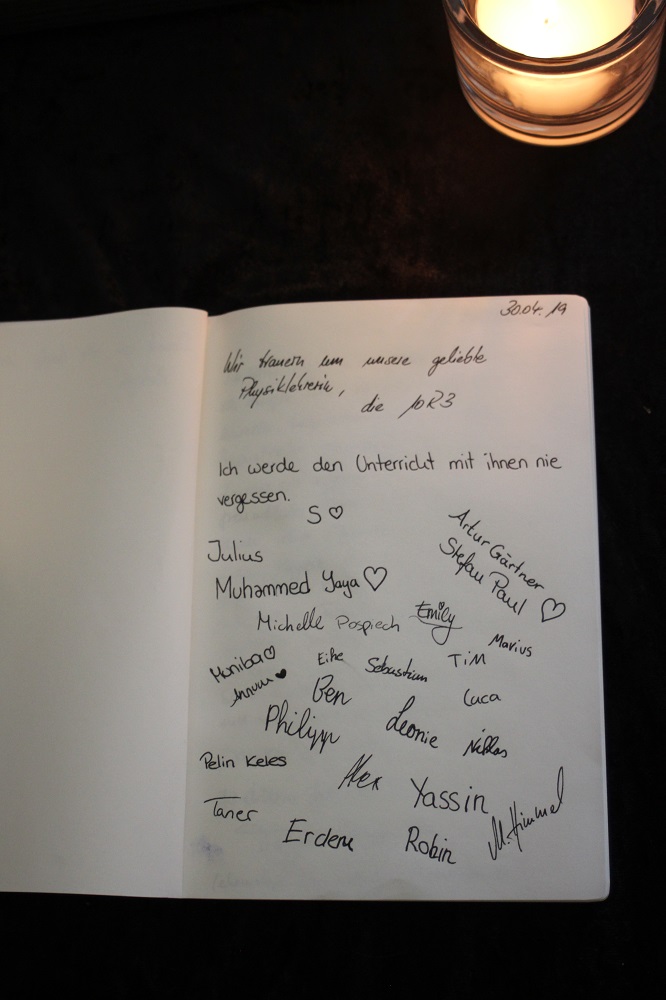 30.04.19
Wir trauern um unsere geliebte
Physiklehrerin,
die pR3
Ich werde den Unterricht mit ihnen nie
vergessen.
S ♡
Artur Gärtner
Stefan Paul ♡
Julius
Muhammed Yaya ♡
Michelle Pospiech
Emily
Marius
Muniba ♡
Eike
Sebastian
TiM
Ben
Luca
Philipp
Leonie
Niklas
Pelin Keles
Alex
Yassin
Taner
Erdem
Robin
M. Himmel